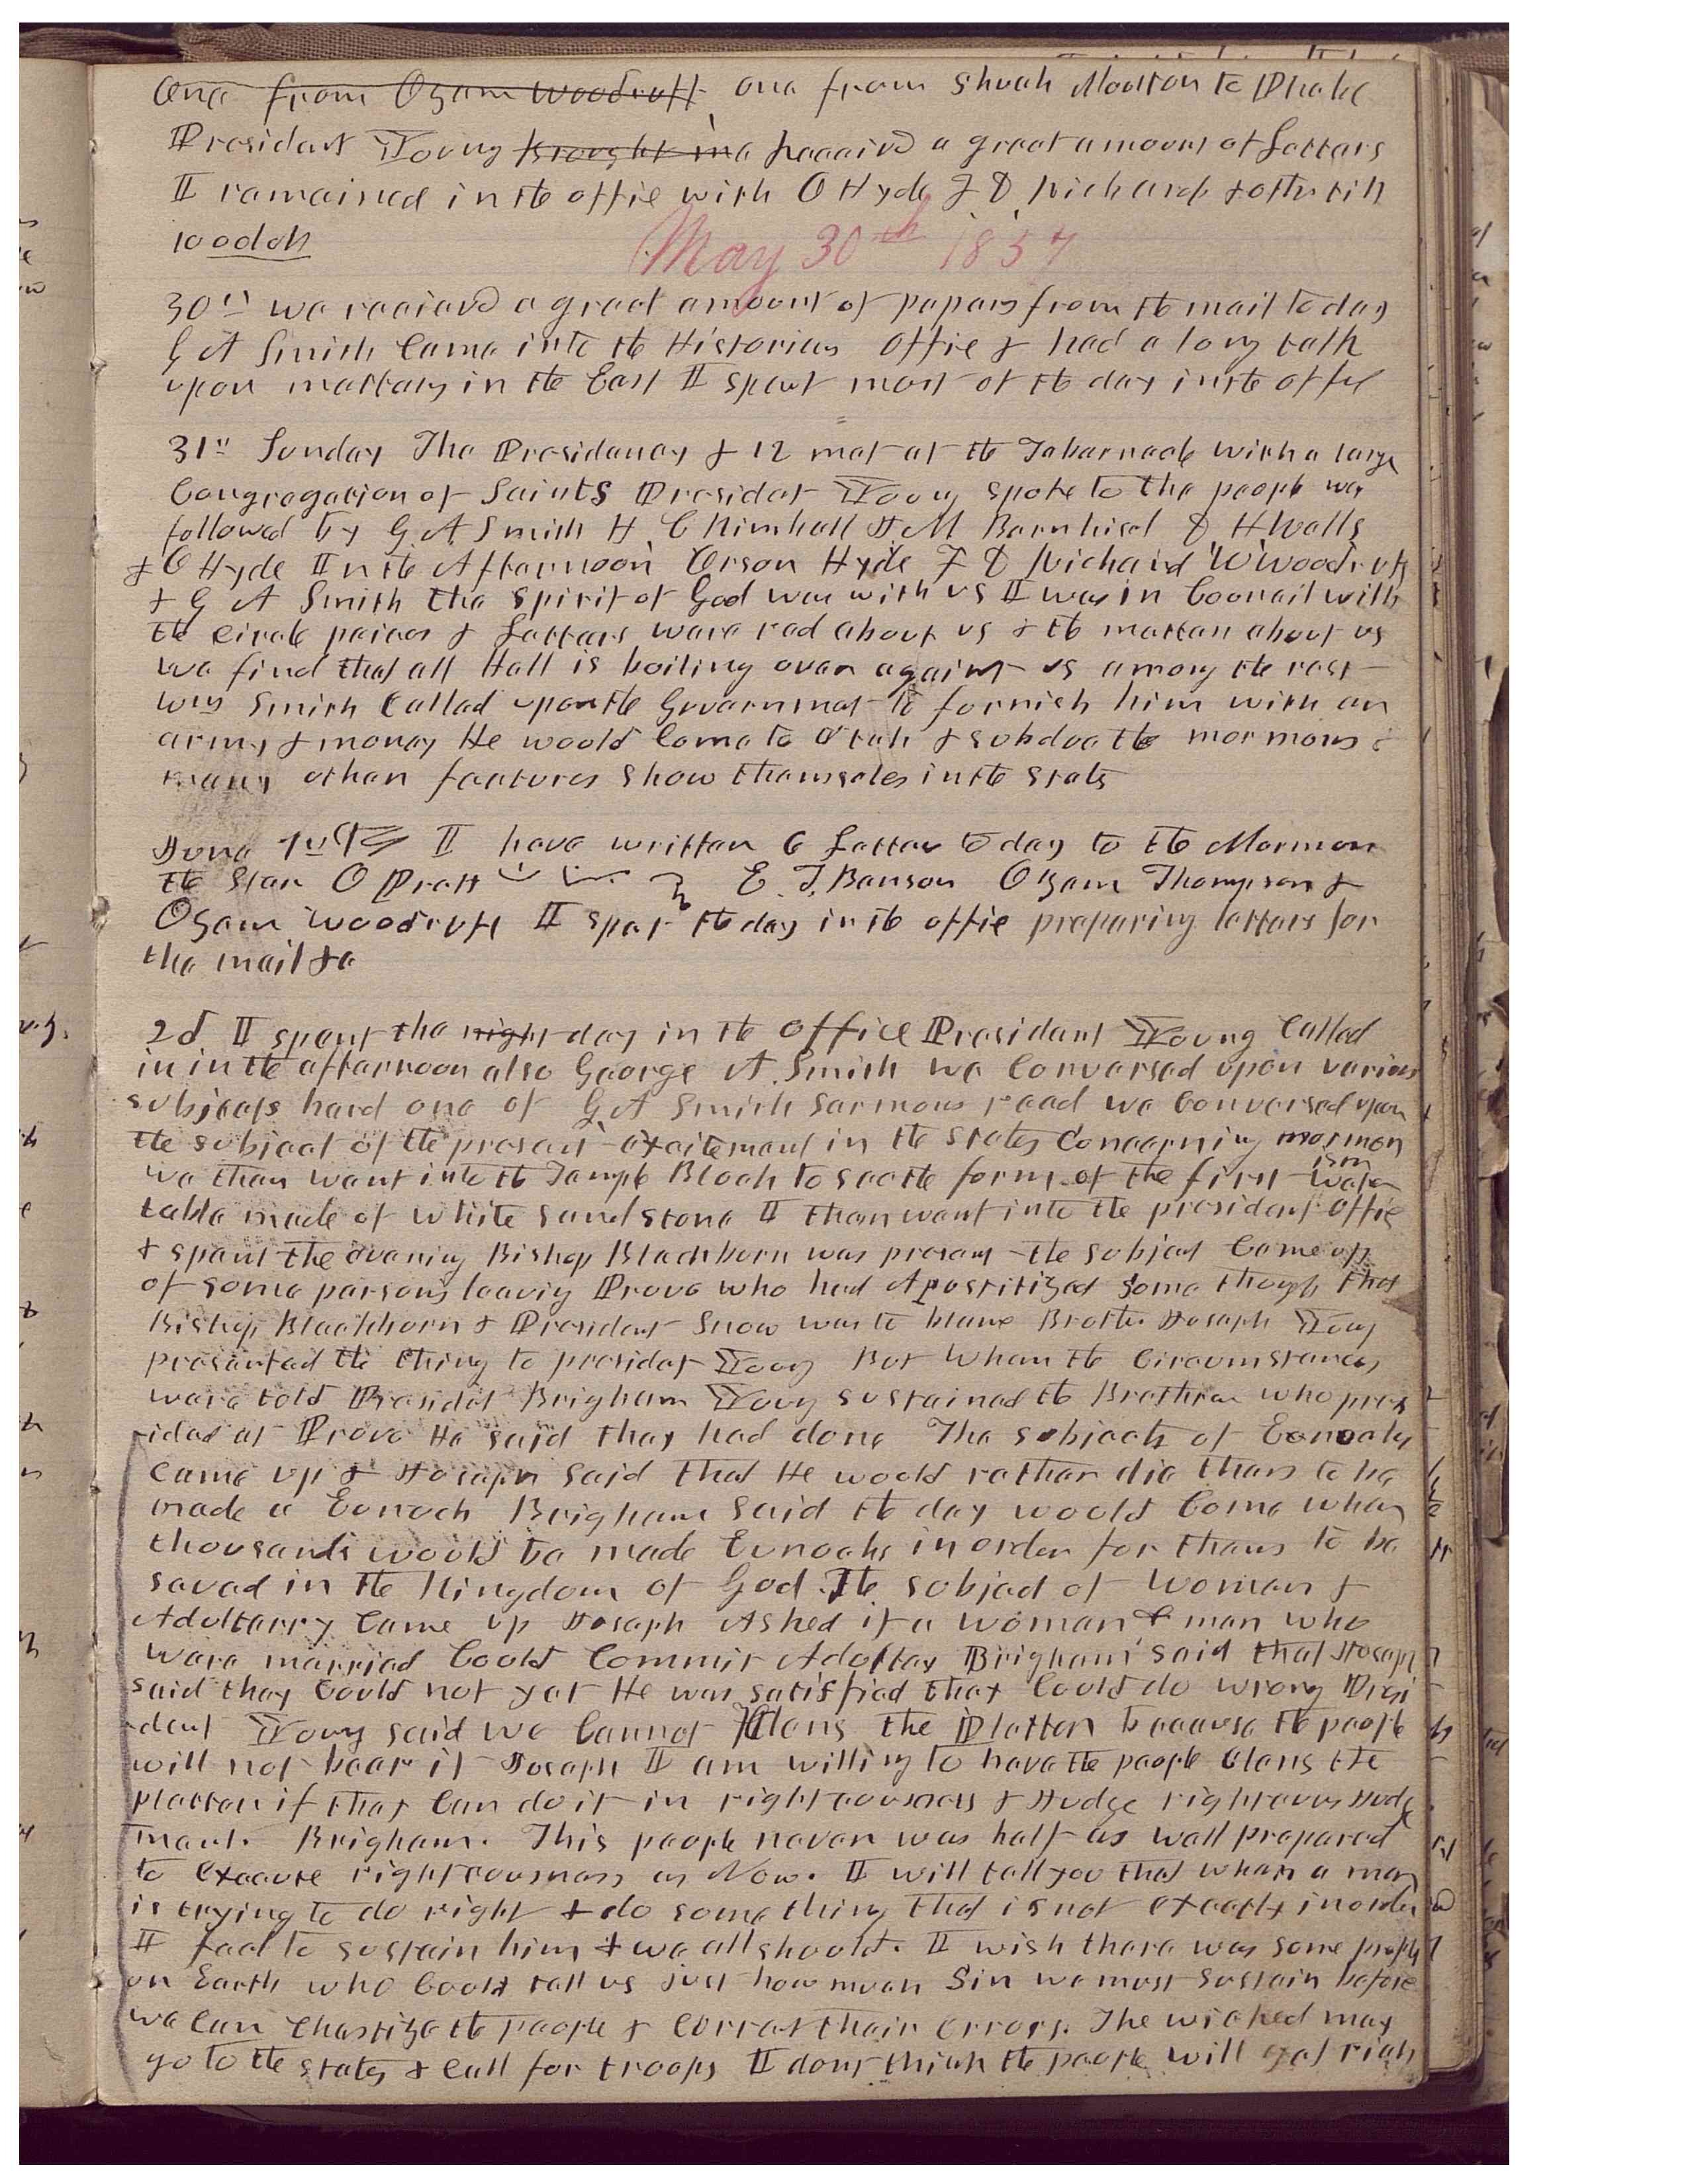 One from Ozem Woodruff, one from Shuah Moulton to Phebe
President Young brought in a Received a great amount of Letters
I remained in the office with O Hyde F D Richards & others till
10 oclok
May 30th 1857
30th we received a great amount of papers from the mail to day
G A Smith Came into the Historians office & had a long talk
upon matters in the East I spent most of the day in the office
31st Sunday The Presidency & 12 met at the Tabernacle with a large
Congregation of Saints President Young spoke to the people was
followed by G. A. Smith H. C Kimball J. M Bernhisel D. H Wells
& O Hyde In the Afternoon Orson Hyde F D Richards W Woodruff
& G A Smith the spirit of God was with us I was in Council with
the circle peices & Letters were red about us & the matters about us
we find that all Hell is boiling over against us among the rest
Wm Smith Called upon the Government to furnish him with an
army & money He would Come to Utah & subdue the mormons &
many other feetures show themselves in the States
June 1st I have written 6 Letters to day to the Mormon
the Star O Pratt E. T. Benson Ozem Thompson &
Ozem Woodruff I spent the day in the office preparing letters for
the mail &c
2d I spent the night day in the office President Young Called
in in the afternoon also George A. Smith we Conversed upon various
subjects hard one of G. A Smith Sermons read we Conversed upon
the subject of the present excitement in the States Concerning mormon
ism
we then went into the Temple Block to see the form of the first water
table made of white sand stone I then went into the presidents office
& spent the evening Bishop Blackburn was present the subject Came up
of some persons leaving Provo who had Apostitized some thought that
Bishop Blackburn & President Snow was to blame Brother Joseph Young
presented the thing to presidet Young But When the Circumstances
were told Presidet Brigham Young sustained the Brethren who pres
ided at Provo He said they had done The subjects of Eunochs
came up & Joseph said that He would rather die than to be
made a Eunoch Brigham Said the day would Come when
thousands would be made Eunochs in order for them to be
saved in the Kingdom of God. The subject of Women &
Adultery Came up Joseph Asked if a woman & man who
were married Could Commit Adultery Brigham said that Joseph
said they Could not yet He was satisfied they Could do wrong Presi
-dent Young said we Cannot Clens the Platter because the people
will not bear it Joseph I am willing to have the people clens the
platter if they Can do it in righteousness & Judge righteous Judg
ment. Brigham. This people never was half as well prepared
to execute righteousness as Now. I will tell you that when a man
is trying to do right & do some thing that is not exactly in order
I feel to sustain him & we all should. I wish there was some people
on Earth who Could tell us just how much Sin we must sustain before
we Can Chastize the people & Correct their errors. The wicked may
go to the States & Call for troops I dont think the people will get rich